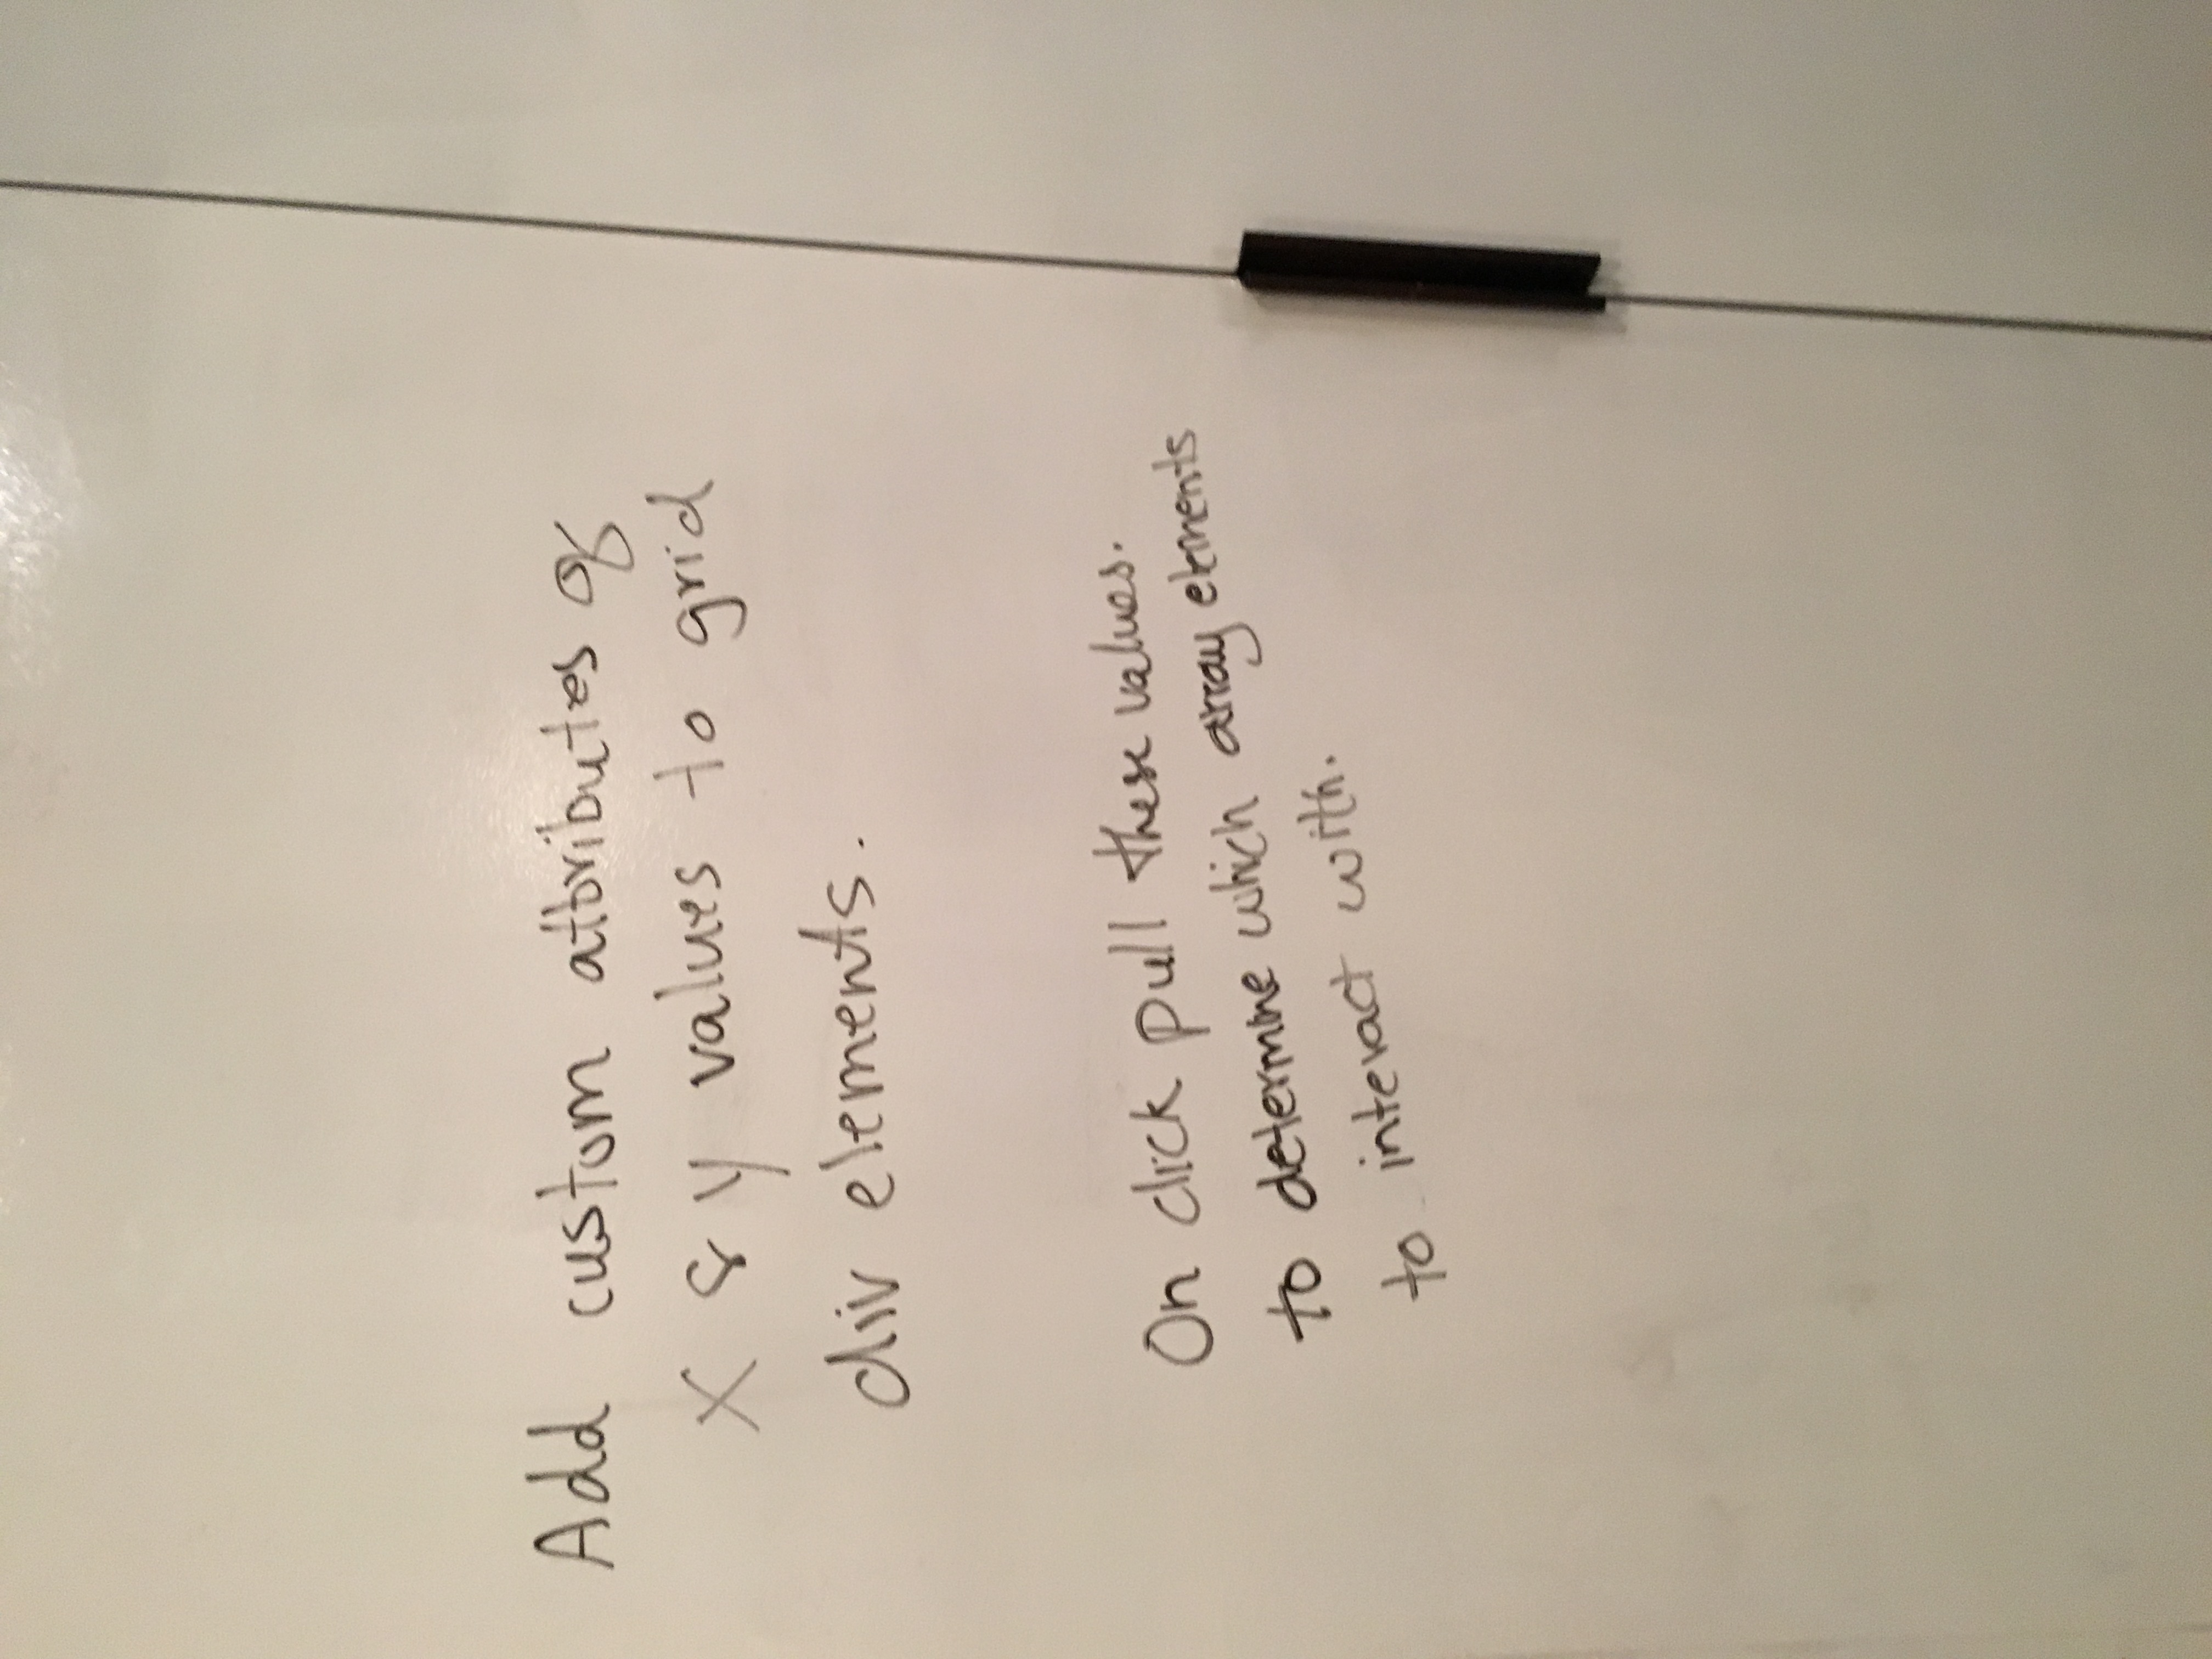 Add custom attributes of
X & y values to grid
div elements.
On click pull these values.
to determine which array elements
to interact with.